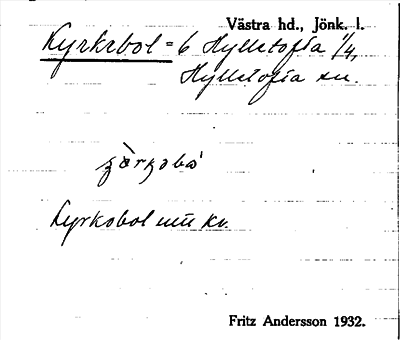 Västra hd., Jönk. l.
Kyrkebol = 6 Hylletofta 1/4,
Hylletofta sn.
Kyrkobol uū kv.
Fritz Andersson 1932.